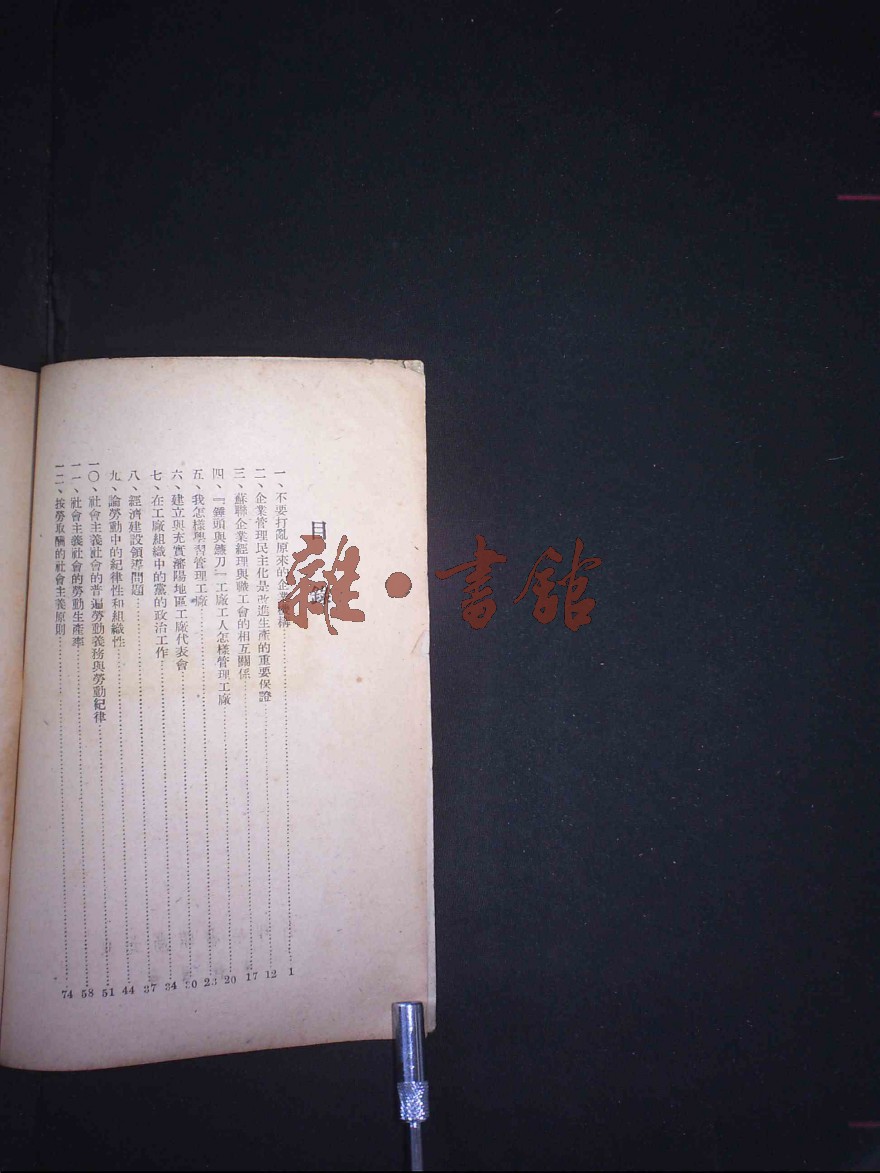 目錄
一、不要打亂原來的企業機構 1
二、企業管理民主化是改進生產的重要保證 12
三、蘇聯企業經理與職工會的相互關係 17
四、『錘頭與鐮刀』工廠工人怎樣管理工廠 20
五、我怎樣學習管理工廠 23
六、建立與充實瀋陽地區工廠代表會 30
七、在工廠組織中的黨的政治工作 34
八、經濟建設領導問題 37
九、論勞動中的紀律性和組織性 44
一〇、社會主義社會的普遍勞動義務與勞動紀律 51
一一、社會主義社會的勞動生產率 58
一二、按勞取酬的社會主義原則 74
雜·書館